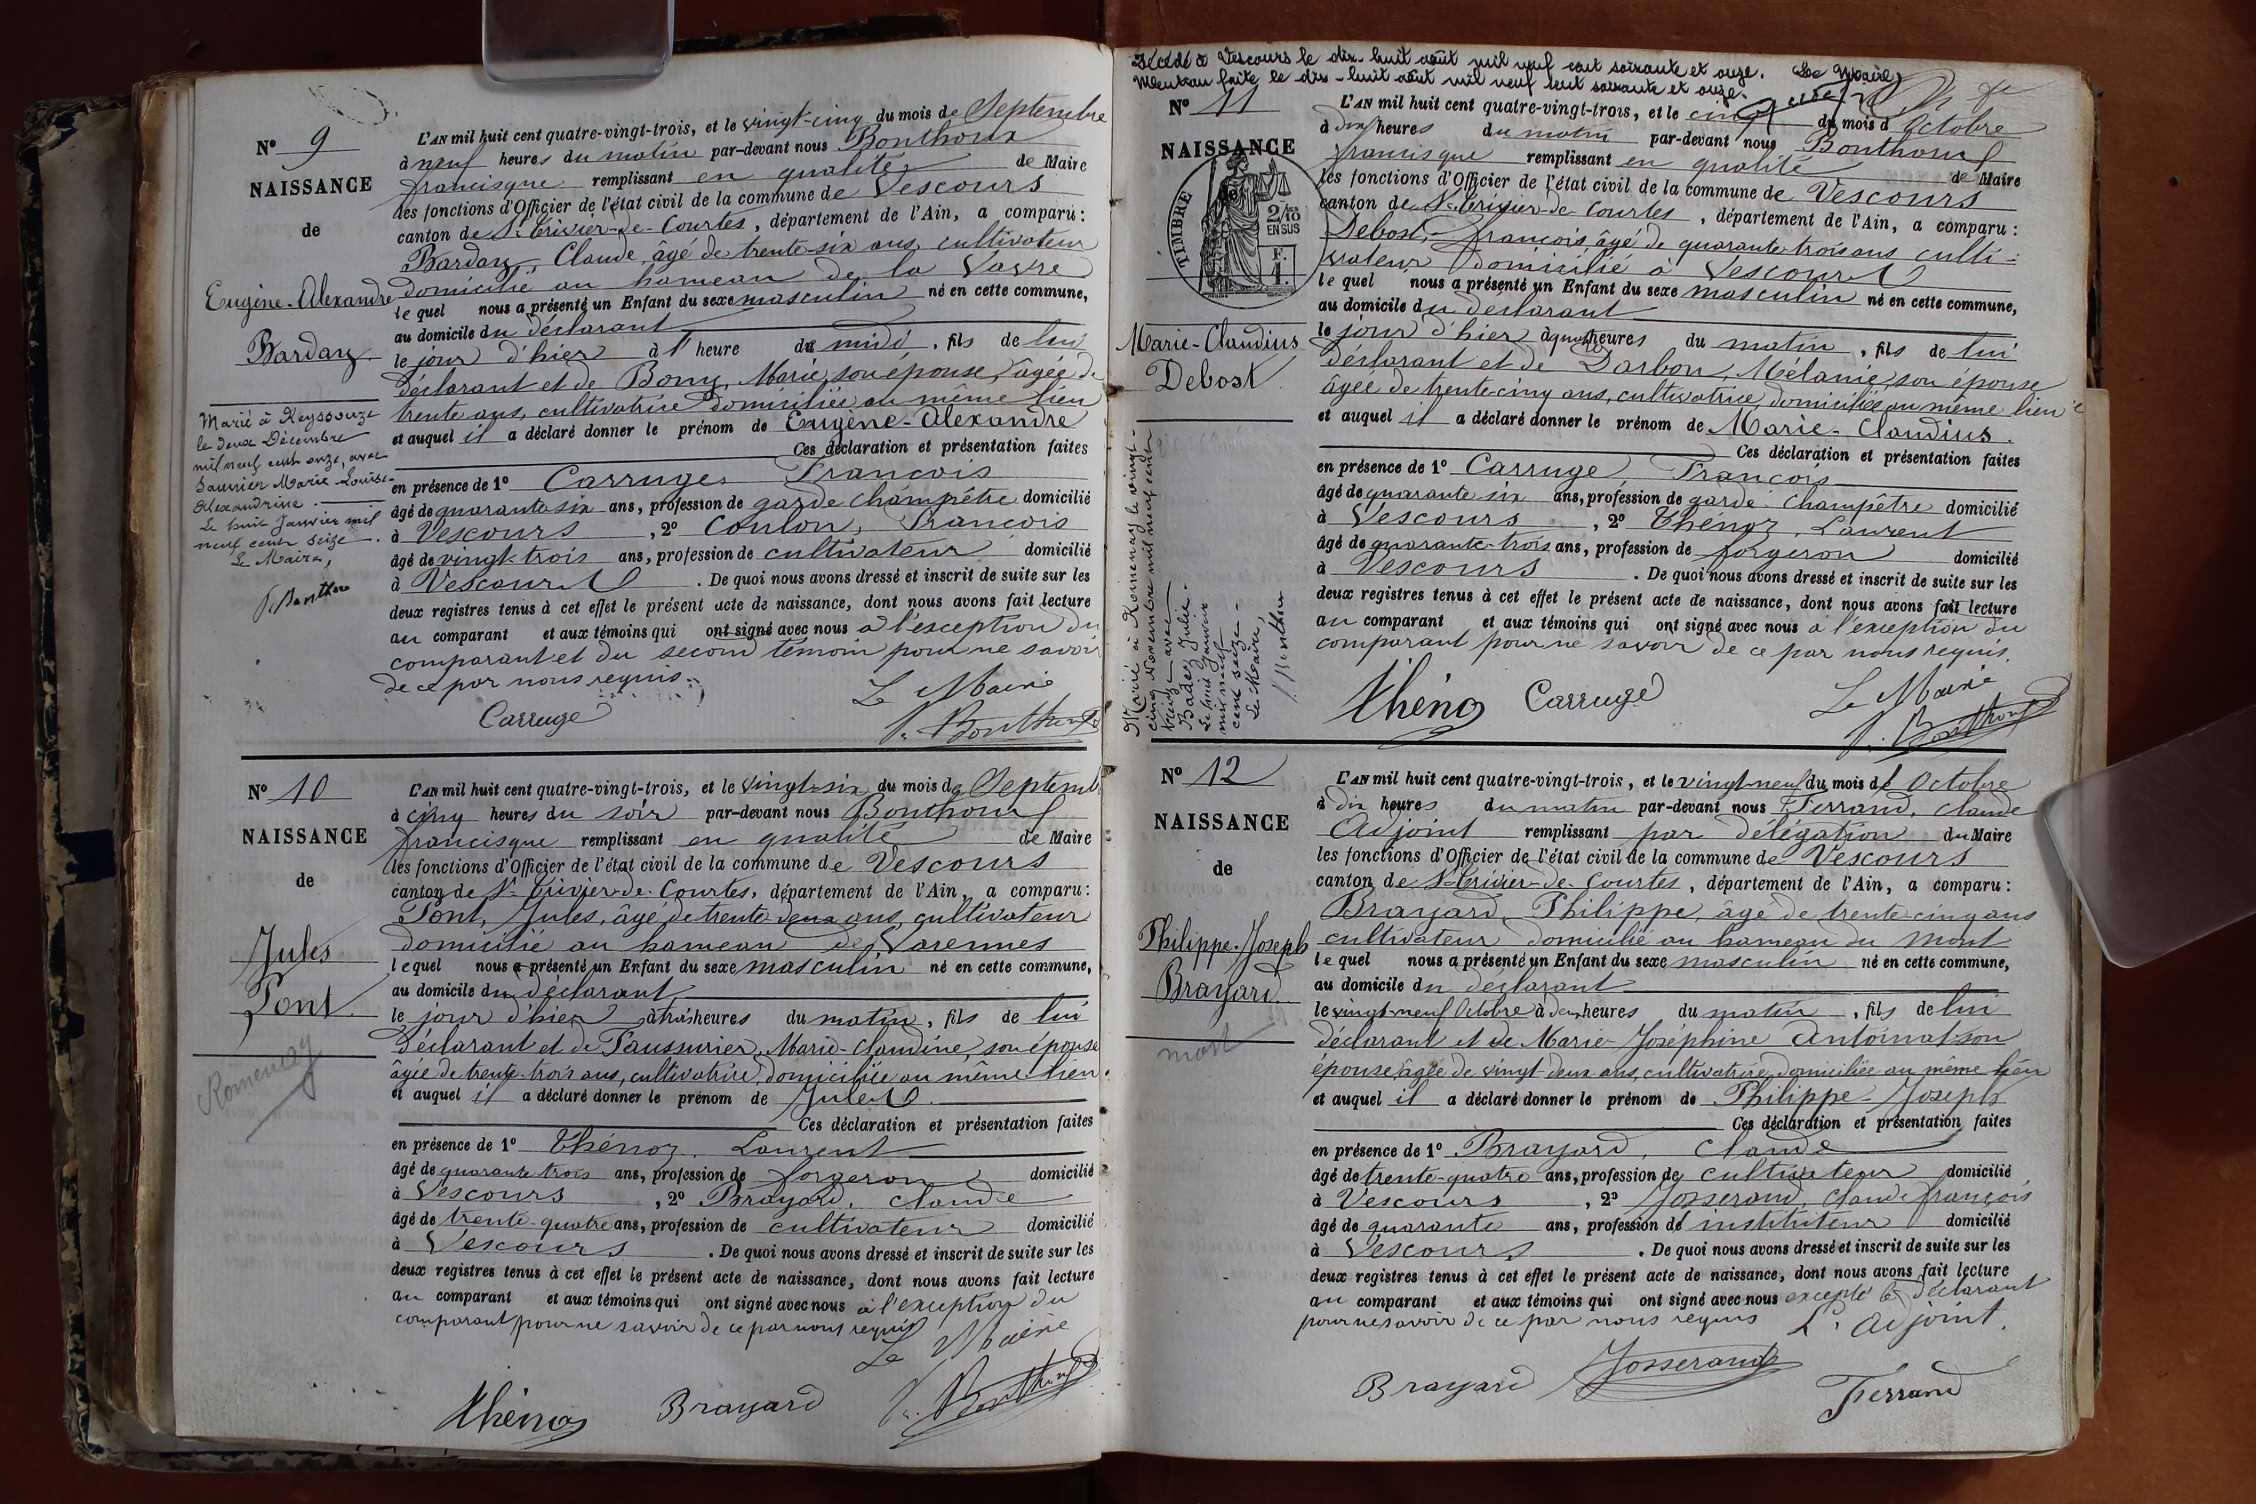 N° 9
NAISSANCE
de
Eugène-Alexandre
Barday
Marié à Reyssouze
le deux Décembre
mil neuf cent onze, avec
Saunier Marie Louise-
Alexandrine.
Le huit Janvier mil
neuf cent seize.
Le Maire,
L'AN mil huit cent quatre-vingt-trois, et le vingt-cinq du mois de Septembre
à neuf heures du matin par-devant nous Bonthoux
francisque remplissant en qualité de Maire
les fonctions d'Officier de l'état civil de la commune de Vescours
canton de St Trivier-de-Courtes, département de l'Ain, a comparu :
Barday, Claude, âgé de trente-six ans, cultivateur
domicilié au hameau de la Vavre
lequel nous a présenté un Enfant du sexe masculin né en cette commune,
au domicile du déclarant
le jour d'hier à 1 heure du midi, fils de lui
déclarant et de Bony, Marie, son épouse, âgée de
trente ans, cultivatrice domiciliée au même lieu
et auquel il a déclaré donner le prénom de Eugène-Alexandre
Ces déclaration et présentation faites
en présence de 1° Carruge François
âgé de quarante six ans, profession de garde champêtre domicilié
à Vescours, 2° Coulon, François
âgé de vingt-trois ans, profession de cultivateur domicilié
à Vescours. De quoi nous avons dressé et inscrit de suite sur les
deux registres tenus à cet effet le présent acte de naissance, dont nous avons fait lecture
au comparant et aux témoins qui ont signé avec nous à l'exception du
comparant et du second témoin pour ne savoir
de ce par nous requis.
Le Maire
Carruge
F. Bonthoux
N° 10
NAISSANCE
de
Jules
Pont
Romenay
L'AN mil huit cent quatre-vingt-trois, et le vingt-six du mois de Septemb
à cinq heures du soir par-devant nous Bonthoux
francisque remplissant en qualité de Maire
les fonctions d'Officier de l'état civil de la commune de Vescours
canton de St Trivier-de-Courtes, département de l'Ain, a comparu :
Pont, Jules, âgé de trente-deux ans, cultivateur
domicilié au hameau des Varennes
lequel nous a présenté un Enfant du sexe masculin né en cette commune,
au domicile du déclarant
le jour d'hier à trois heures du matin, fils de lui
déclarant et de Paussurier, Marie-Claudine, son épouse
âgée de trente-trois ans, cultivatrice, domiciliée au même lieu.
et auquel il a déclaré donner le prénom de Jules
Ces déclaration et présentation faites
en présence de 1° Thénoz, Laurent
âgé de quarante trois ans, profession de forgeron domicilié
à Vescours, 2° Brayard, Claude
âgé de trente-quatre ans, profession de cultivateur domicilié
à Vescours. De quoi nous avons dressé et inscrit de suite sur les
deux registres tenus à cet effet le présent acte de naissance, dont nous avons fait lecture
au comparant et aux témoins qui ont signé avec nous à l'exception du
comparant pour ne savoir de ce par nous requis
Le Maire
Thénoz Brayard F. Bonthoux
Décédé à Vescours le dix-huit août mil neuf cent soixante et onze. Le Maire,
Mention faite le dix-huit août mil neuf cent soixante et onze.
N° 11
NAISSANCE
TIMBRE
2/10
EN SUS
F.
1.
Marie-Claudius
Debost
Marié à Romenay le vingt-
cinq Novembre mil neuf cent
treize avec
Badez Julie.
Le huit Janvier
mil neuf
cent seize.
Le Maire,
L'AN mil huit cent quatre-vingt-trois, et le cinq du mois d'Octobre
à dix heures du matin par-devant nous Bonthoux
francisque remplissant en qualité de Maire
les fonctions d'Officier de l'état civil de la commune de Vescours
canton de St Trivier-de-Courtes, département de l'Ain, a comparu :
Debost, François, âgé de quarante-trois ans, culti-
vateur domicilié à Vescours
lequel nous a présenté un Enfant du sexe masculin né en cette commune,
au domicile du déclarant
le jour d'hier à quatre heures du matin, fils de lui
déclarant et de Darbon, Mélanie, son épouse
âgée de trente-cinq ans, cultivatrice, domiciliée au même lieu
et auquel il a déclaré donner le prénom de Marie-Claudius.
Ces déclaration et présentation faites
en présence de 1° Carruge, François
âgé de quarante six ans, profession de garde-champêtre domicilié
à Vescours, 2° Thénoz, Laurent
âgé de quarante-trois ans, profession de forgeron domicilié
à Vescours. De quoi nous avons dressé et inscrit de suite sur les
deux registres tenus à cet effet le présent acte de naissance, dont nous avons fait lecture
au comparant et aux témoins qui ont signé avec nous à l'exception du
comparant pour ne savoir de ce par nous requis.
Thénoz Carruge Le Maire
F. Bonthoux
N° 12
NAISSANCE
de
Philippe-Joseph
Brayard
mort
L'AN mil huit cent quatre-vingt-trois, et le vingt-neuf du mois d'Octobre
à dix heures du matin par-devant nous Ferrand, Claude
Adjoint remplissant par délégation du Maire
les fonctions d'Officier de l'état civil de la commune de Vescours
canton de St Trivier-de-Courtes, département de l'Ain, a comparu :
Brayard, Philippe, âgé de trente-cinq ans
cultivateur domicilié au hameau du Mont
lequel nous a présenté un Enfant du sexe masculin né en cette commune,
au domicile du déclarant
le vingt-neuf Octobre à deux heures du matin, fils de lui
déclarant et de Marie-Joséphine Antoinat son
épouse, âgée de vingt-deux ans, cultivatrice domiciliée au même lieu
et auquel il a déclaré donner le prénom de Philippe-Joseph
Ces déclaration et présentation faites
en présence de 1° Brayard, Claude
âgé de trente-quatre ans, profession de cultivateur domicilié
à Vescours, 2° Josserand, Claude François
âgé de quarante ans, profession de instituteur domicilié
à Vescours. De quoi nous avons dressé et inscrit de suite sur les
deux registres tenus à cet effet le présent acte de naissance, dont nous avons fait lecture
au comparant et aux témoins qui ont signé avec nous excepté le déclarant
pour ne savoir de ce par nous requis L'adjoint.
Brayard Josserand Ferrand